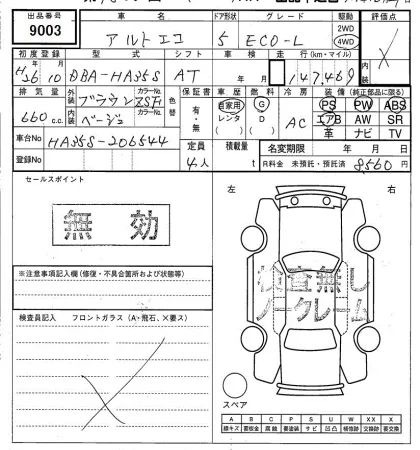 出品番号 車名 ドア形状 グレード 駆動 評価点
9003 アルトエコ 5 ECO-L 2WD 4WD
内装
初度登録 型式 シフト 車検 走行(km・マイル)
H26年10月 DBA-HA35S AT 年 月 147,469
排気量 外装 ブラウン カラーNo. ZSF 色替 保証書 車歴 燃料 冷房 装備(純正部品に限る)
660 c.c. 内装 ベージュ カラーNo. 有・無 自家用 レンタ G D AC PS PW ABS
エアB AW SR
革 ナビ TV
車台No HA35S-206544 定員 積載量 名変期限 年 月 日
登録No 4人 t R料金 未預託・預託済 8560円
セールスポイント
無効
左 右
検査無し
ノークレーム
※注意事項記入欄(修復・不具合箇所および状態等)
検査員記入 フロントガラス(A・飛石、×要ス)
スペア
A B C P S U W X XX
線キズ 要板金 腐蝕 要塗装 サビ 凹凸 補修跡 要交換